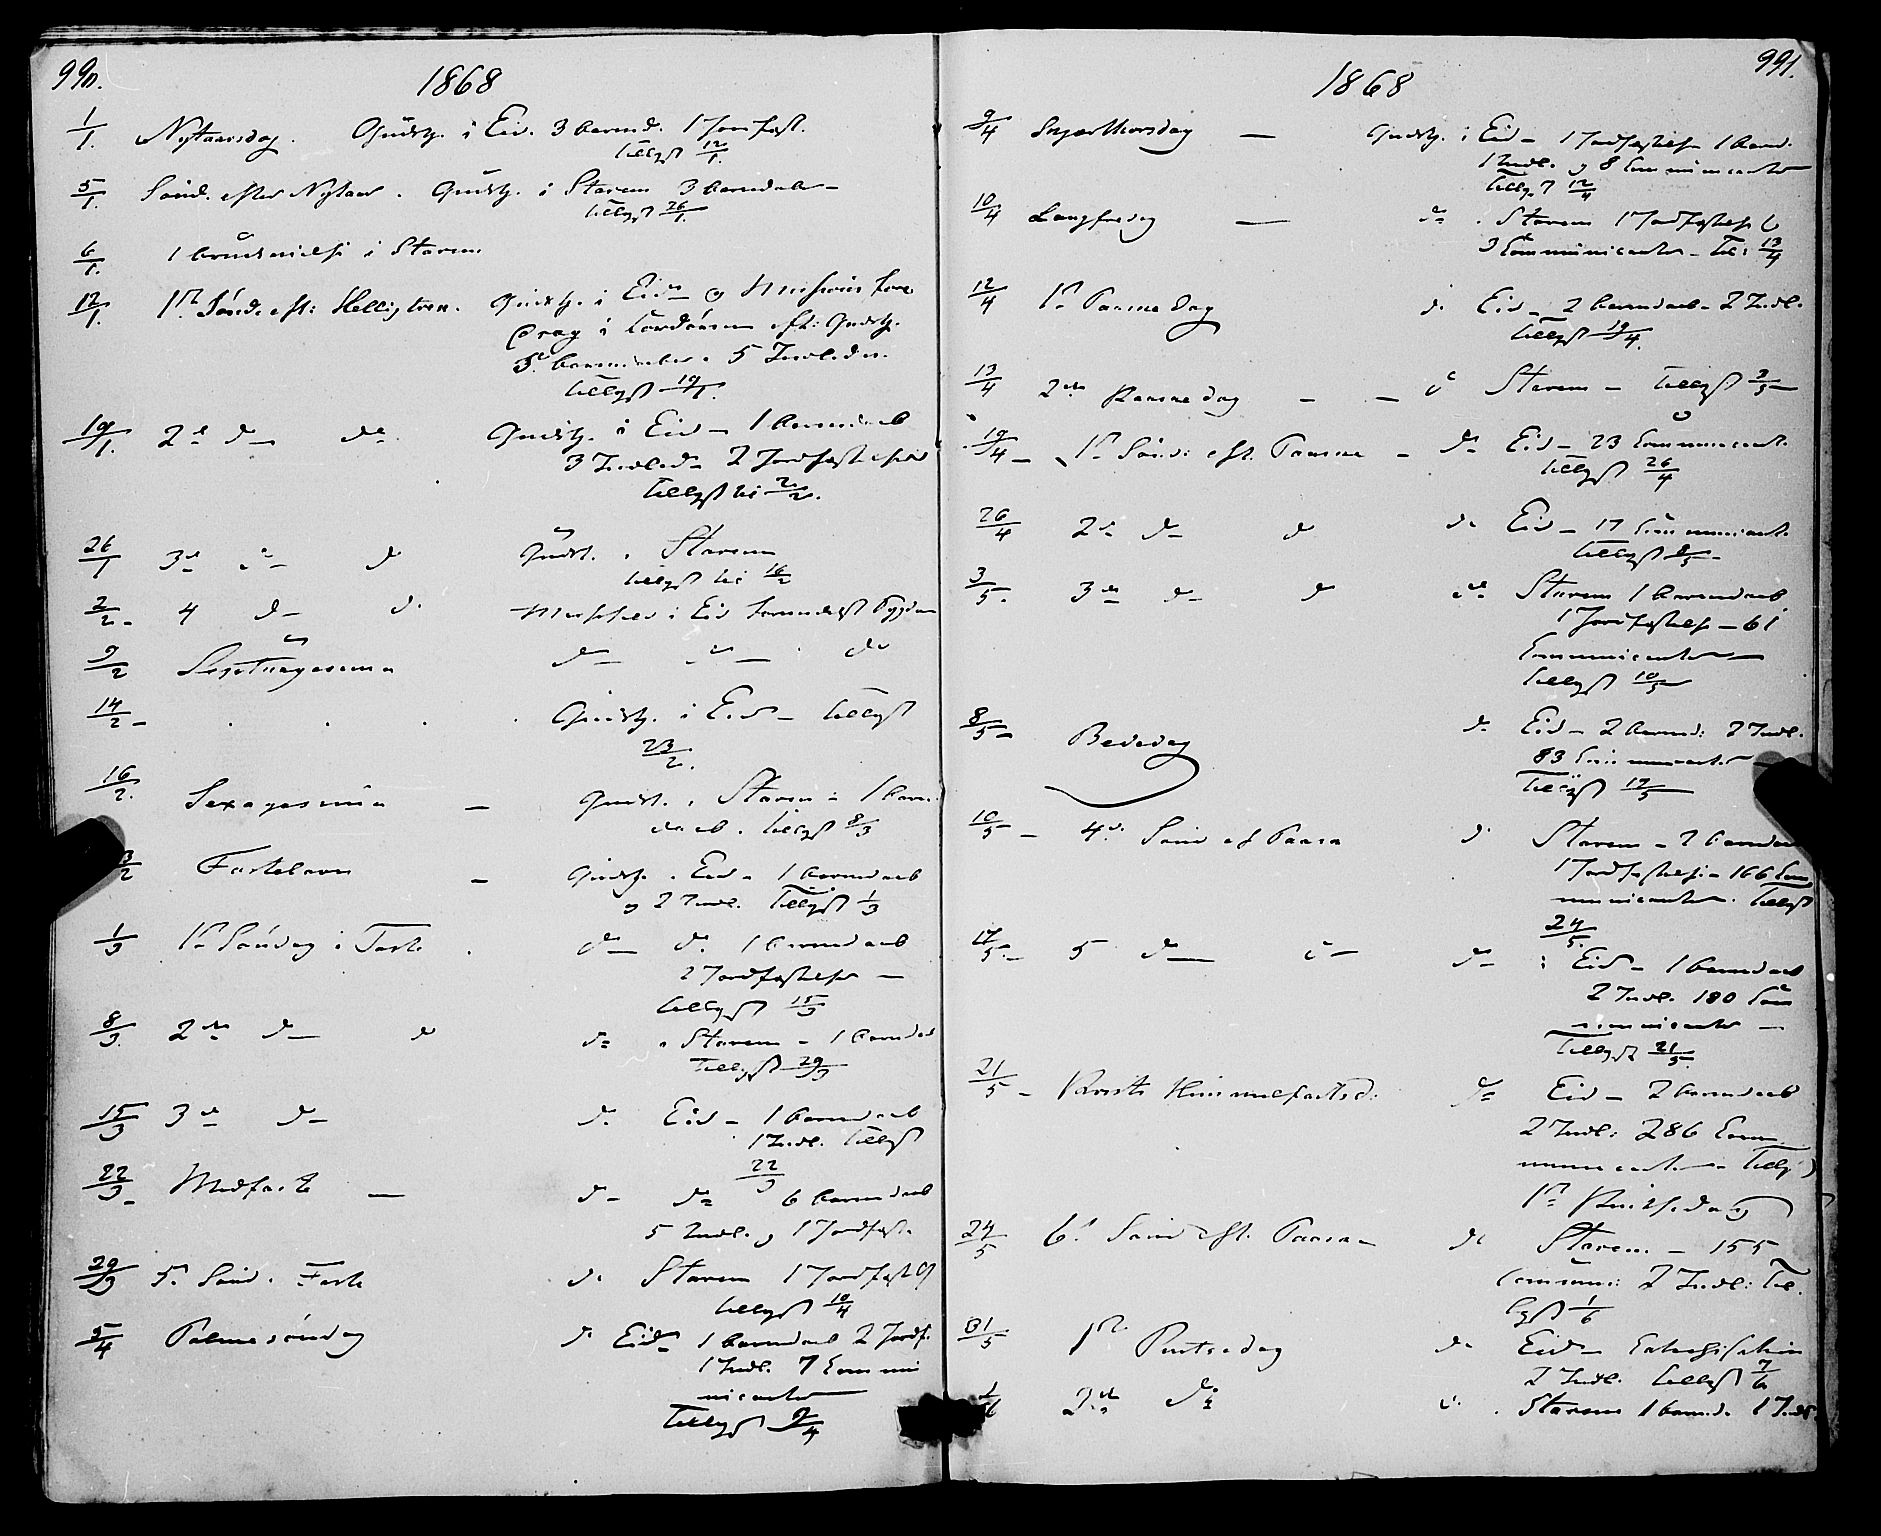 990.
1868
1/1. Nytaarsdag. Gudstj. i Eid. 3 barnd. 1 Jordfæst.
tillyst 12/1.
5/1. Sönd. efter Nytaar. Gudstj. i Støren 3 barndaab
tillyst 26/1.
6/1. 1 brudevielse i Støren
12/1. 1ste Sönd. eft: Helligtrek. Gudstj. i Eid og Missions fore
drag i eft: Gudstj.
3 5 Indleder.
tillyst 19/1.
19/1. 2d do do Gudstj. i Eid 1 barndaab
3 Indled. 2 Jordfæstelser
tillyst til 2/2.
26/1 3de do d Gudst. i Støren
tillyst til 16/2
2/2 4 do d. Messefald i Eid
9/2 Septuagesima do do do
14/2 . . . . Gudstj. i Eid tillyst
23/2.
16/2. Sexagesima Gudst. i Støren 1 barn
daab. tillyst 8/3
Fastelavn Gudstj. i Eid 1 barndaab
og 2 Indl. Tillyst 1/3
1/3 1ste Söndag i Faste do d. 1 barndaab
2 Jordfæstelser
tillyst 15/3
8/3 2den do d do i Støren 1 barndaab
Tillyst 29/3
15/3 3de do d. Eid 1 barndaab
1 Indl. tillyst
22/3
22/3 Midfaste do do 6 barndaab
5 Indl. og 1 Jordfæst.
29/3 5. Sönd. i Faste d. Støren 1 Jordfæstels
tillyst 10/4
5/4 Palmesöndag d. Eid 1 barndaab 2 Jordf.
1 Indl. 7 Commu
nicanter
Tillyst 9/4
991.
1868
9/4 Skjærthorsdag Gudstj. i Eid 1 Jordfæstelse 1 barnd.
1 Indl. og 8 Communicanter
tillyst 12/4
10/4 Langfredag do i Støren 1 Jordfæstelse
Communicanter Til: 13/4
12/4 1ste Paaskedag d. Eid 2 barndaab 2 Indl.
tillyst 19/4.
13/4 2den Paaskedag d Støren tillyst 3/5
19/4 1ste Sönd: eft. Paaske do Eid 23 Communicant.
tillyst 26/4
26/4 2de do d do Eid 17 Communicant.
tillyst 8/5
3/5. 3die do d do Støren 1 barndaab
1 Jordfæstelse 61
Communicanter
tillyst 10/5
8/5 Bededag do Eid 2 barnd: 2 Indl.
83 Communicanter
Tillyst 17/5
10/5 4de Sönd ef Paaske d. Støren 2 barndaab
1 Jordfæstelse 166 Com
municanter. tillyst
24/5.
17/5. 5 do do do i Eid 1 barndaab
2 Indl. 180 Com
municanter
Tillyst 21/5
21/5 Kristi Himmelfartsd. do Eid 2 barndaab
2 Indl: 286 Com
municanter Tillyst
1ste Pintsedag
24/5 6te Sönd eft. Paaske do Støren 155
Commun: 2 Indl: Til
lyst 1/6
31/5 1ste Pintsedag do Eid Catechisation
2 Indl. tillyst 7/6
1/6 2den do d. Støren 1 barnd. 1 Indl.